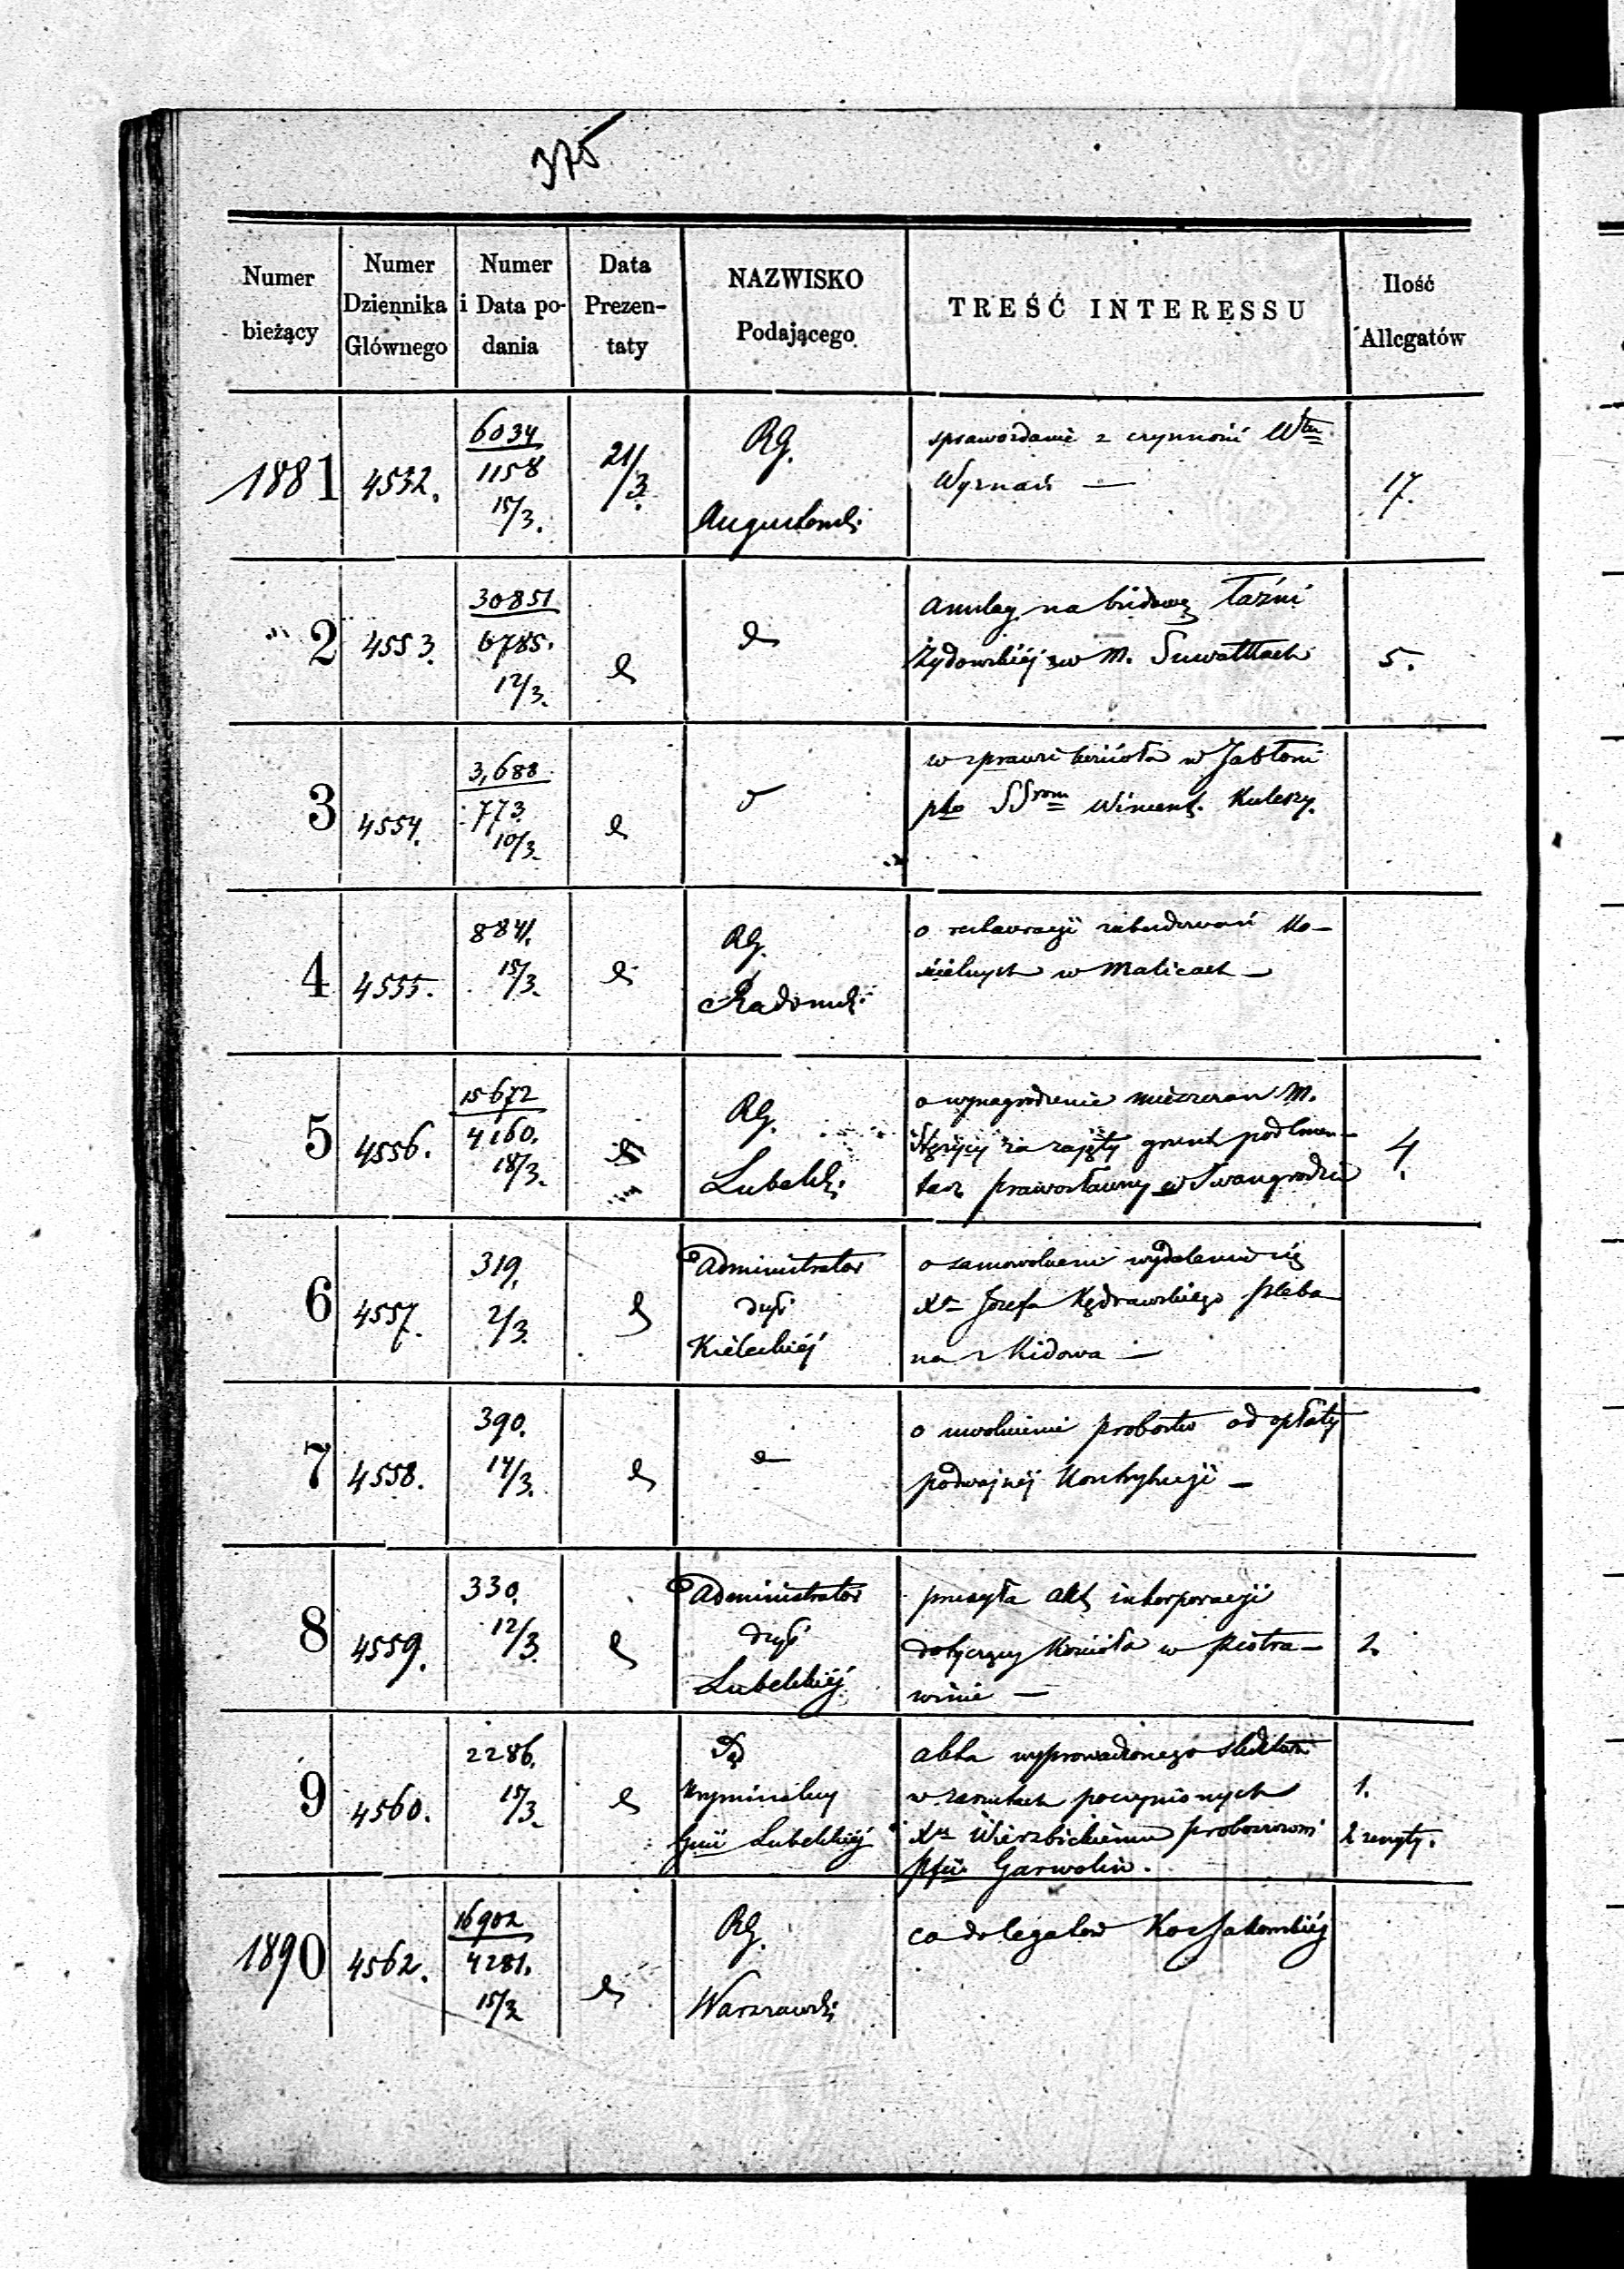 375
Numer bieżący | Numer Dziennika Głównego | Numer i Data podania | Data Prezentaty | NAZWISKO Podającego | TREŚĆ INTERESSU | Ilość Allegatów
1881 | 4532. | 6034 / 1158 15/3. | 21/3. | RG. Augustowski | sprawozdanie z czynności Włu
Wyznań — | 17.
2 | 4553. | 30851 / 6785. 12/3. | d | d | anszlag na budowę Łaźni
Żydowskiéj w M. Suwałkach | 5.
3 | 4554. | 3,688 / 773. 10/3. | d | d | w sprawie kościoła w Jabłoni
pko SSrom Wincent. Kuleszy.
4 | 4555. | 8841. 15/3. | d | RG. Radomski | o restauracyi zabudowań Ko-
ścielnych w Malicach —
5 | 4556. | 15672 / 4160. 18/3. | d | RG. Lubelski | o wynagrodzenie mieszczan M.
Stężycy za zajęty grunt pod Cmen-
tarz prawosławny w Iwangrodzie | 4.
6 | 4557. | 319. 2/3. | d | Administrator dyi Kieleckiéj | o samowolnem wydaleniu się
Xa Józefa Kędrawskiego pleba
na z Kidowa —
7 | 4558. | 390. 14/3. | d | d | o uwolnienie probostw od opłaty
podwojnéj Kontrybucyi —
8 | 4559. | 330. 12/3. | d | Administrator dyi Lubelskiéj | przesyła akt inkorporacyi
dotyczący Kościoła w Piotra-
winie — | 2.
9 | 4560. | 2286. 15/3. | d | Sąd Kryminalny Gnii Lubelskiéj | akta wyprowadzonego śledztwa
w zarzutach poczynionych
Xu Wierzbickiemu proboszczowi
pfii Garwolin. | 1.
2 zeszyty.
1890 | 4562. | 16902 / 4281. 15/3 | d | RG. Warszawski | co do legatów Kossakowskiéj